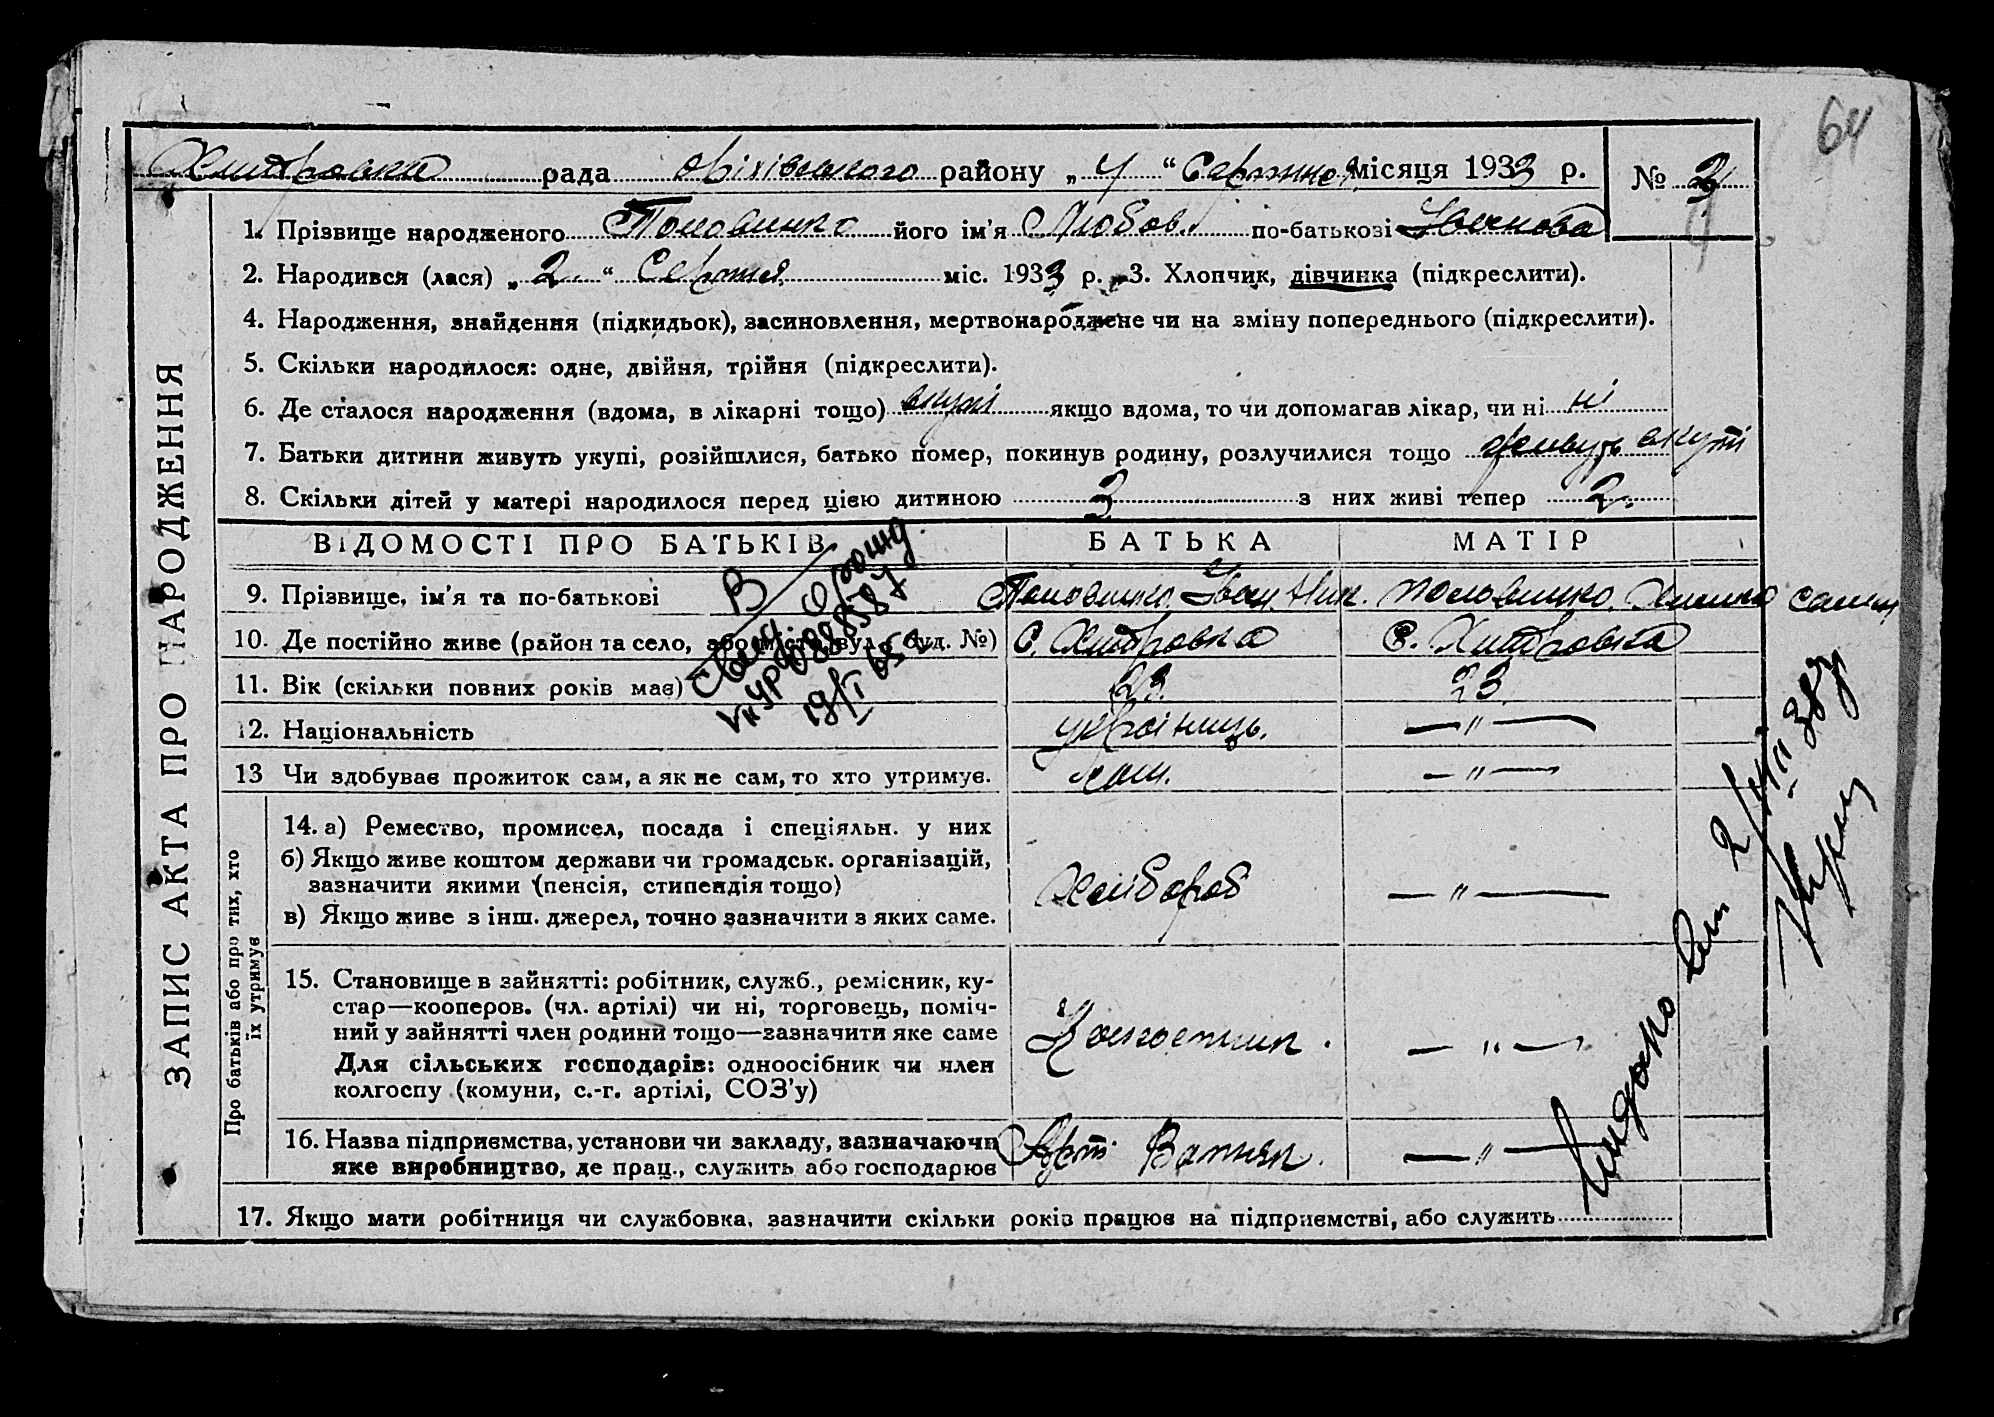 64
Хитровка рада оріхівського району „4“ Серпня місяця 1933 р. №
1. Прізвище народженого його ім'я Любов по-батькові Іванова
2. Народився (лася) „2“ Серпня міс. 1933 р. 3. Хлопчик, дівчинка (підкреслити).
4. Народження, знайдення (підкидьок), засиновлення, мертвонароджене чи на зміну попереднього (підкреслити).
5. Скільки народилося: одне, двійня, трійня (підкреслити).
6. Де сталося народження (вдома, в лікарні тощо) якщо вдома, то чи допомагав лікар, чи ні ні
7. Батьки дитини живуть укупі, розійшлися, батько помер, покинув родину, розлучилися тощо живуть вкупі
8. Скільки дітей у матері народилося перед цією дитиною 3 з них живі тепер 2
ВІДОМОСТІ ПРО БАТЬКІВ БАТЬКА МАТІР
9. Прізвище, ім'я та по-батькові Іван
10. Де постійно живе (район та село, або місто, вул., буд. №) с. Хитровка с. Хитровка
11. Вік (скільки повних років має) 23 23
12. Національність українець. — " —
13 Чи здобуває прожиток сам, а як не сам, то хто утримує. сам. — " —
14. а) Ремество, промисел, посада і спеціяльн. у них
б) Якщо живе коштом держави чи громадськ. організацій,
зазначити якими (пенсія, стипендія тощо)
в) Якщо живе з інш. джерел, точно зазначити з яких саме.
Хлібороб — " —
15. Становище в зайнятті: робітник, служб., ремісник, ку-
стар—кооперов. (чл. артілі) чи ні, торговець, поміч-
ний у зайнятті член родини тощо—зазначити яке саме
Для сільських господарів: одноосібник чи член
колгоспу (комуни, с.-г. артілі, СОЗ'у)
Колгоспник. — " —
16. Назва підприємства, установи чи закладу, зазначаючи
яке виробництво, де прац., служить або господарює
Арт. — " —
17. Якщо мати робітниця чи службовка, зазначити скільки років працює на підприємстві, або служить
ЗАПИС АКТА ПРО НАРОДЖЕННЯ
Про батьків або про тих, хто
їх утримує